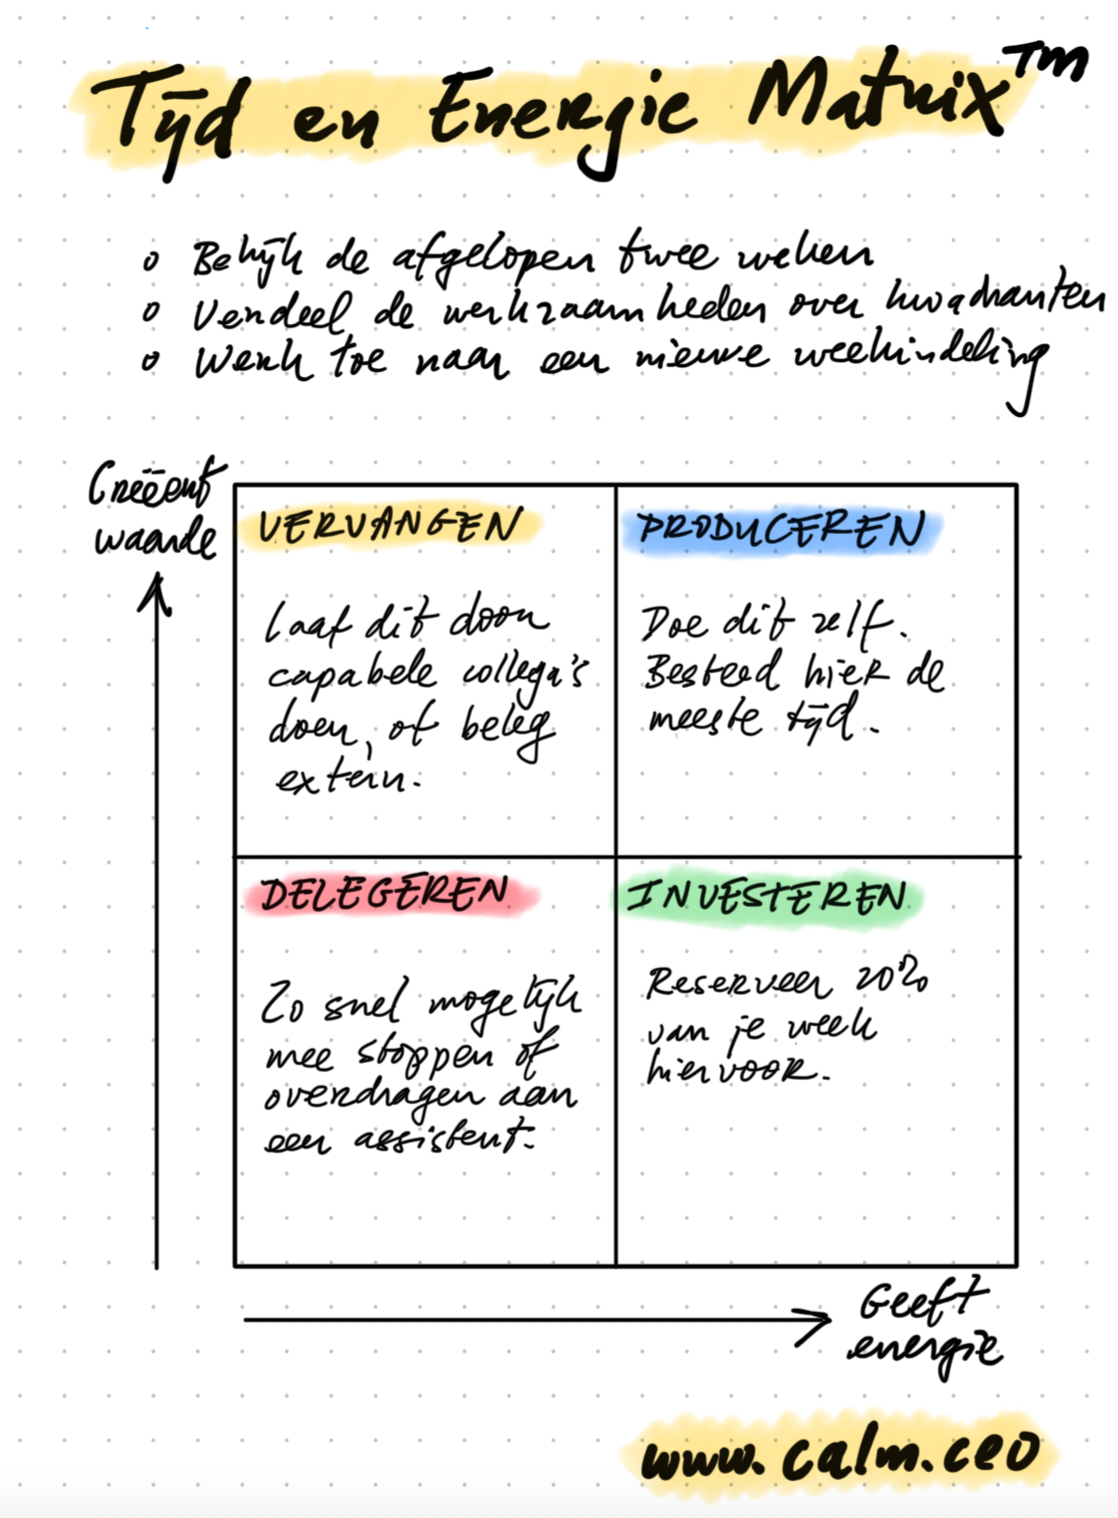 Tijd en Energie Matrix™
o Bekijk de afgelopen twee weken
o Verdeel de werkzaamheden over kwadranten
o Werk toe naar een nieuwe weekindeling
Creëert
waarde
VERVANGEN
Laat dit door
capabele collega's
doen, of beleg
extern.
PRODUCEREN
Doe dit zelf.
Besteed hier de
meeste tijd.
DELEGEREN
Zo snel mogelijk
mee stoppen of
overdragen aan
een assistent.
INVESTEREN
Reserveer 20%
van je week
hiervoor.
Geeft
energie
www.calm.ceo